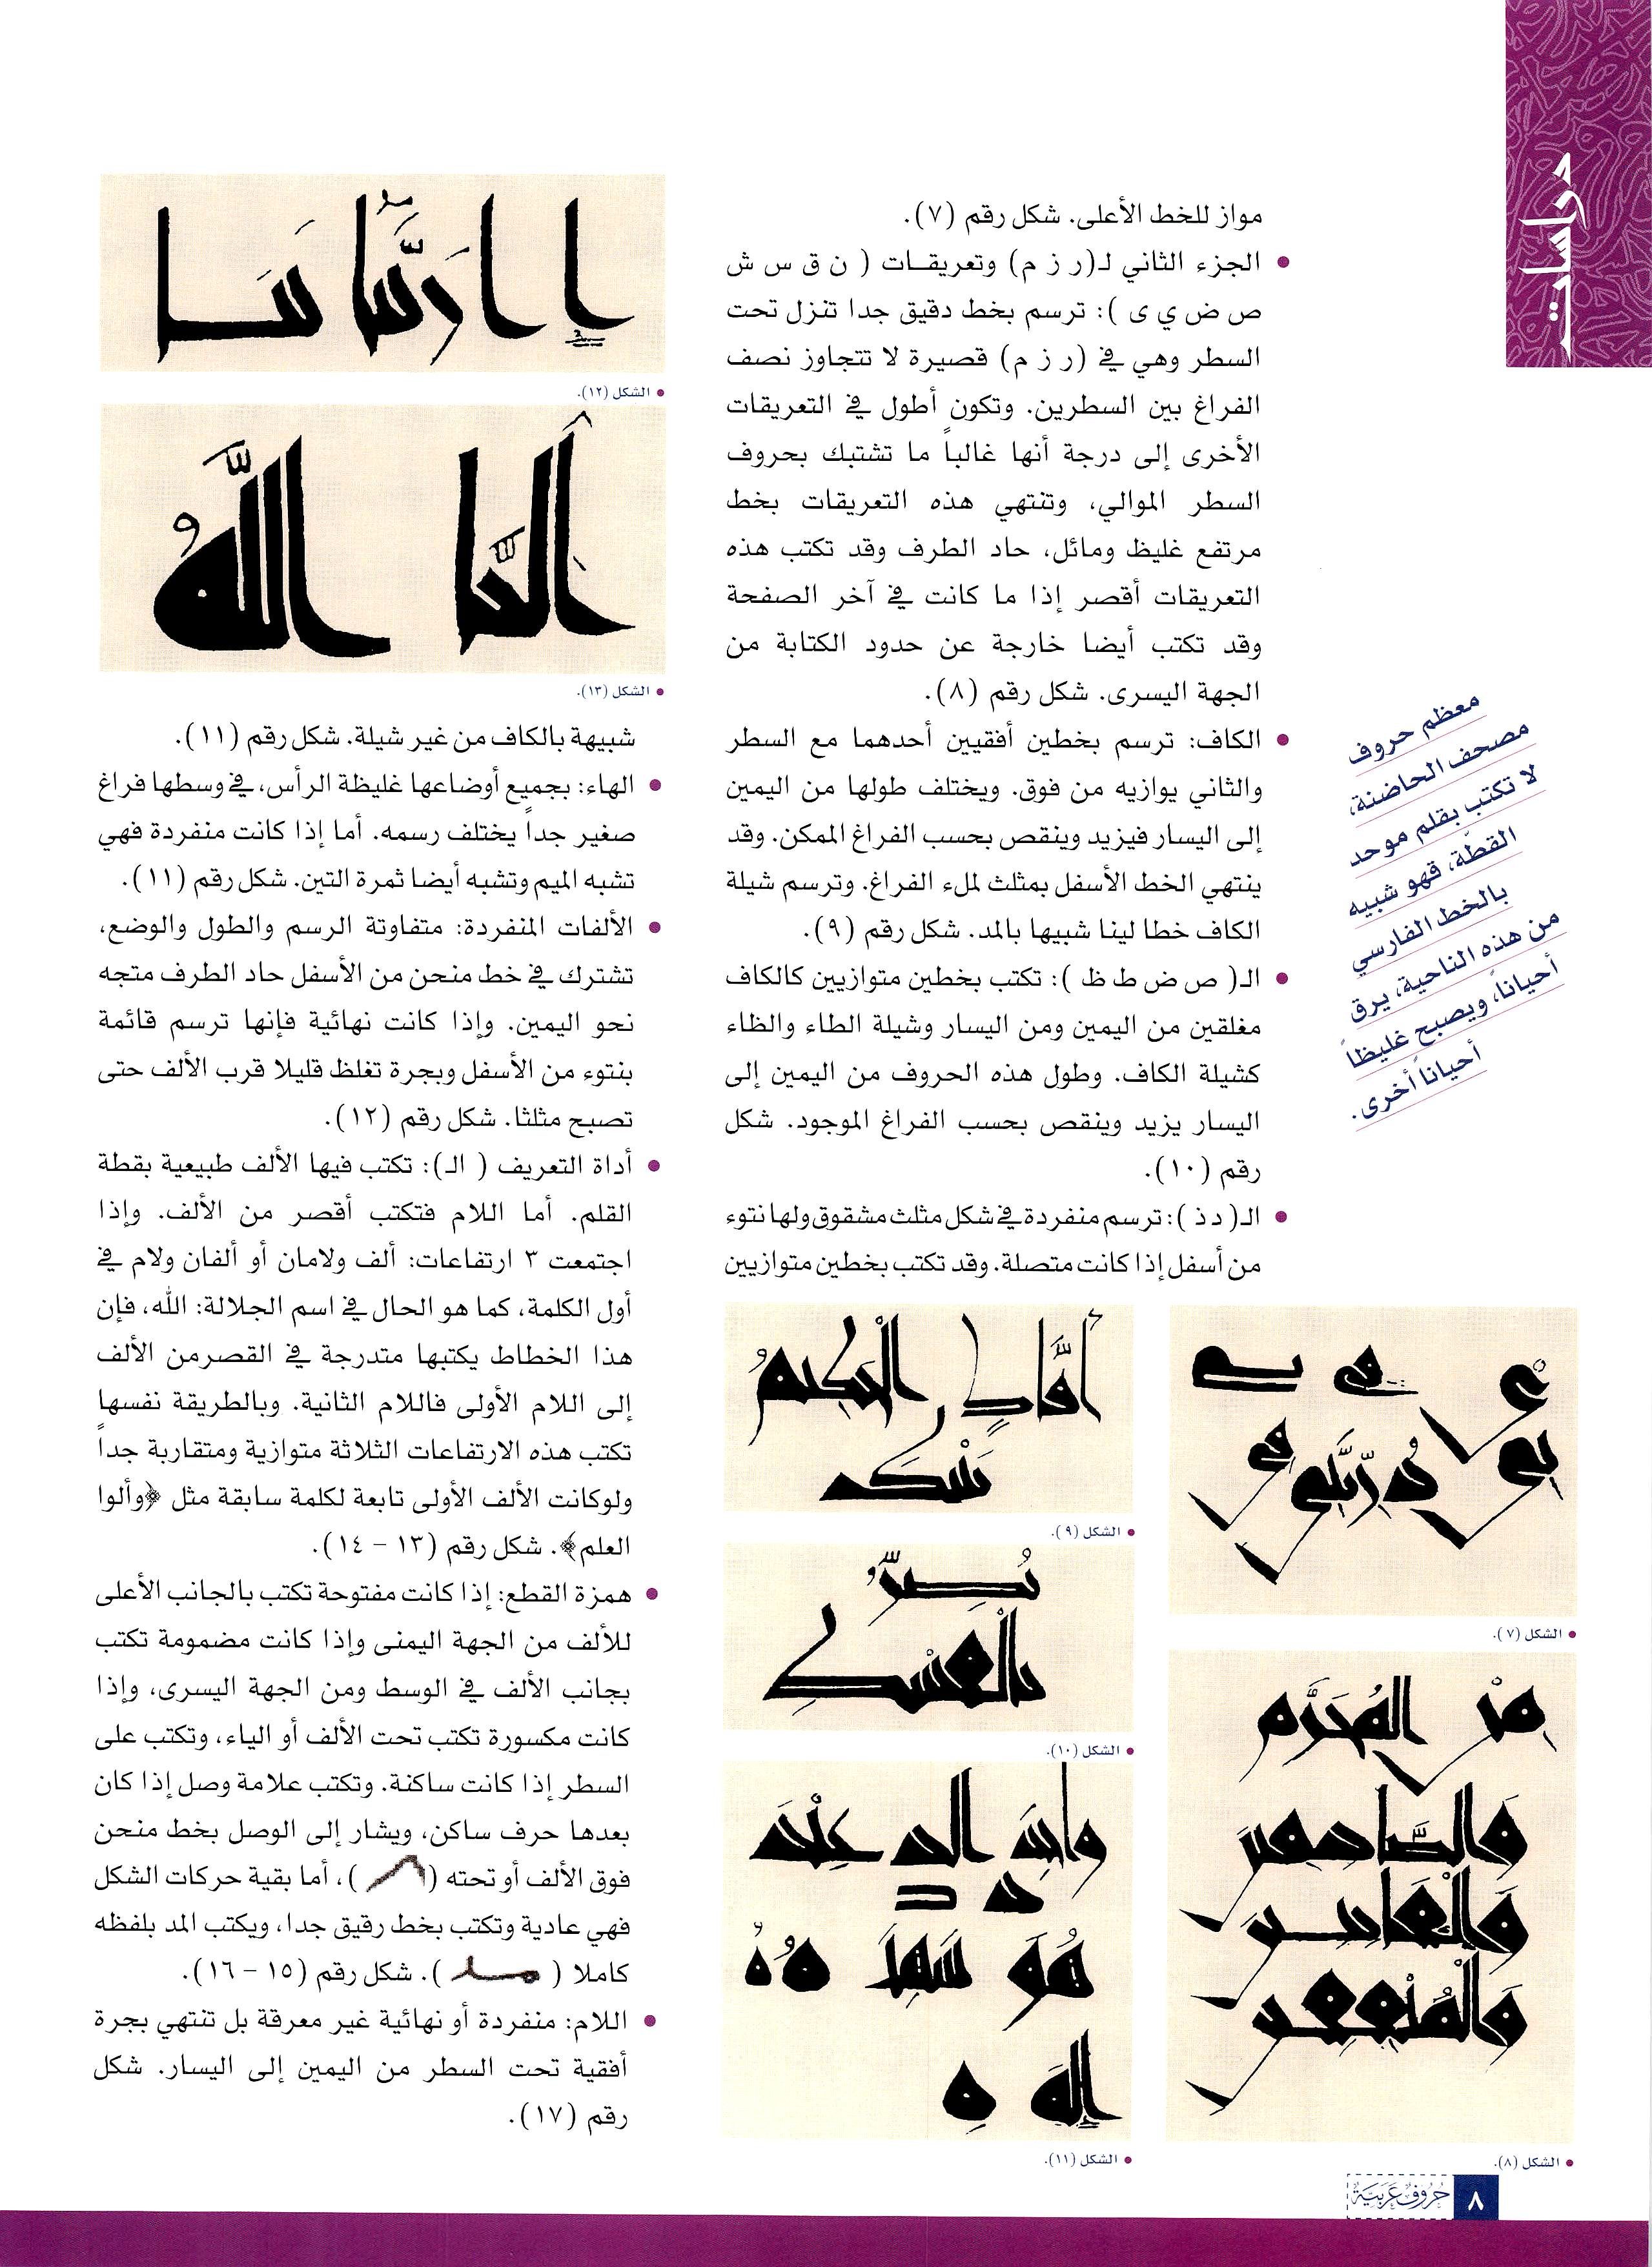 دراسات
مواز للخط الأعلى. شكل رقم (٧).
• الجزء الثاني لـ(ر ز م) وتعريقـات ( ن ق س ش
ص ض ي ى ): ترسم بخط دقيق جدا تنزل تحت
السطر وهي في (ر ز م) قصيرة لا تتجاوز نصف
الفراغ بين السطرين. وتكون أطول في التعريقات
الأخرى إلى درجة أنها غالباً ما تشتبك بحروف
السطر الموالي، وتنتهي هذه التعريقات بخط
مرتفع غليظ ومائل، حاد الطرف وقد تكتب هذه
التعريقات أقصر إذا ما كانت في آخر الصفحة
وقد تكتب أيضا خارجة عن حدود الكتابة من
الجهة اليسرى. شكل رقم (٨).
• الكاف: ترسم بخطين أفقيين أحدهما مع السطر
والثاني يوازيه من فوق. ويختلف طولها من اليمين
إلى اليسار فيزيد وينقص بحسب الفراغ الممكن. وقد
ينتهي الخط الأسفل بمثلث لملء الفراغ. وترسم شيلة
الكاف خطا لينا شبيها بالمد. شكل رقم (٩).
• الـ( ص ض ط ظ ): تكتب بخطين متوازيين كالكاف
مغلقين من اليمين ومن اليسار وشيلة الطاء والظاء
كشيلة الكاف. وطول هذه الحروف من اليمين إلى
اليسار يزيد وينقص بحسب الفراغ الموجود. شكل
رقم (١٠).
• الـ( د ذ ): ترسم منفردة في شكل مثلث مشقوق ولها نتوء
من أسفل إذا كانت متصلة. وقد تكتب بخطين متوازيين
معظم حروف
مصحف الحاضنة،
لا تكتب بقلم موحد
القطّة، فهو شبيه
بالخط الفارسي
من هذه الناحية، يرق
أحياناً، ويصبح غليظاً
أحياناً أخرى.
• الشكل (٧).
• الشكل (٨).
• الشكل (٩).
• الشكل (١٠).
• الشكل (١١).
• الشكل (١٢).
• الشكل (١٣).
شبيهة بالكاف من غير شيلة. شكل رقم (١١).
• الهاء: بجميع أوضاعها غليظة الرأس، في وسطها فراغ
صغير جداً يختلف رسمه. أما إذا كانت منفردة فهي
تشبه الميم وتشبه أيضا ثمرة التين. شكل رقم (١١).
• الألفات المنفردة: متفاوتة الرسم والطول والوضع،
تشترك في خط منحن من الأسفل حاد الطرف متجه
نحو اليمين. وإذا كانت نهائية فإنها ترسم قائمة
بنتوء من الأسفل وبجرة تغلظ قليلا قرب الألف حتى
تصبح مثلثا. شكل رقم (١٢).
• أداة التعريف ( الـ): تكتب فيها الألف طبيعية بقطة
القلم. أما اللام فتكتب أقصر من الألف. وإذا
اجتمعت ٣ ارتفاعات: ألف ولامان أو ألفان ولام في
أول الكلمة، كما هو الحال في اسم الجلالة: الله، فإن
هذا الخطاط يكتبها متدرجة في القصرمن الألف
إلى اللام الأولى فاللام الثانية. وبالطريقة نفسها
تكتب هذه الارتفاعات الثلاثة متوازية ومتقاربة جداً
ولوكانت الألف الأولى تابعة لكلمة سابقة مثل ﴿وألوا
العلم﴾. شكل رقم (١٣ – ١٤).
• همزة القطع: إذا كانت مفتوحة تكتب بالجانب الأعلى
للألف من الجهة اليمنى وإذا كانت مضمومة تكتب
بجانب الألف في الوسط ومن الجهة اليسرى، وإذا
كانت مكسورة تكتب تحت الألف أو الياء، وتكتب على
السطر إذا كانت ساكنة. وتكتب علامة وصل إذا كان
بعدها حرف ساكن، ويشار إلى الوصل بخط منحن
فوق الألف أو تحته ( )، أما بقية حركات الشكل
فهي عادية وتكتب بخط رقيق جدا، ويكتب المد بلفظه
كاملا ( مـد ). شكل رقم (١٥ – ١٦).
• اللام: منفردة أو نهائية غير معرقة بل تنتهي بجرة
أفقية تحت السطر من اليمين إلى اليسار. شكل
رقم (١٧).
٨ حروف عربية